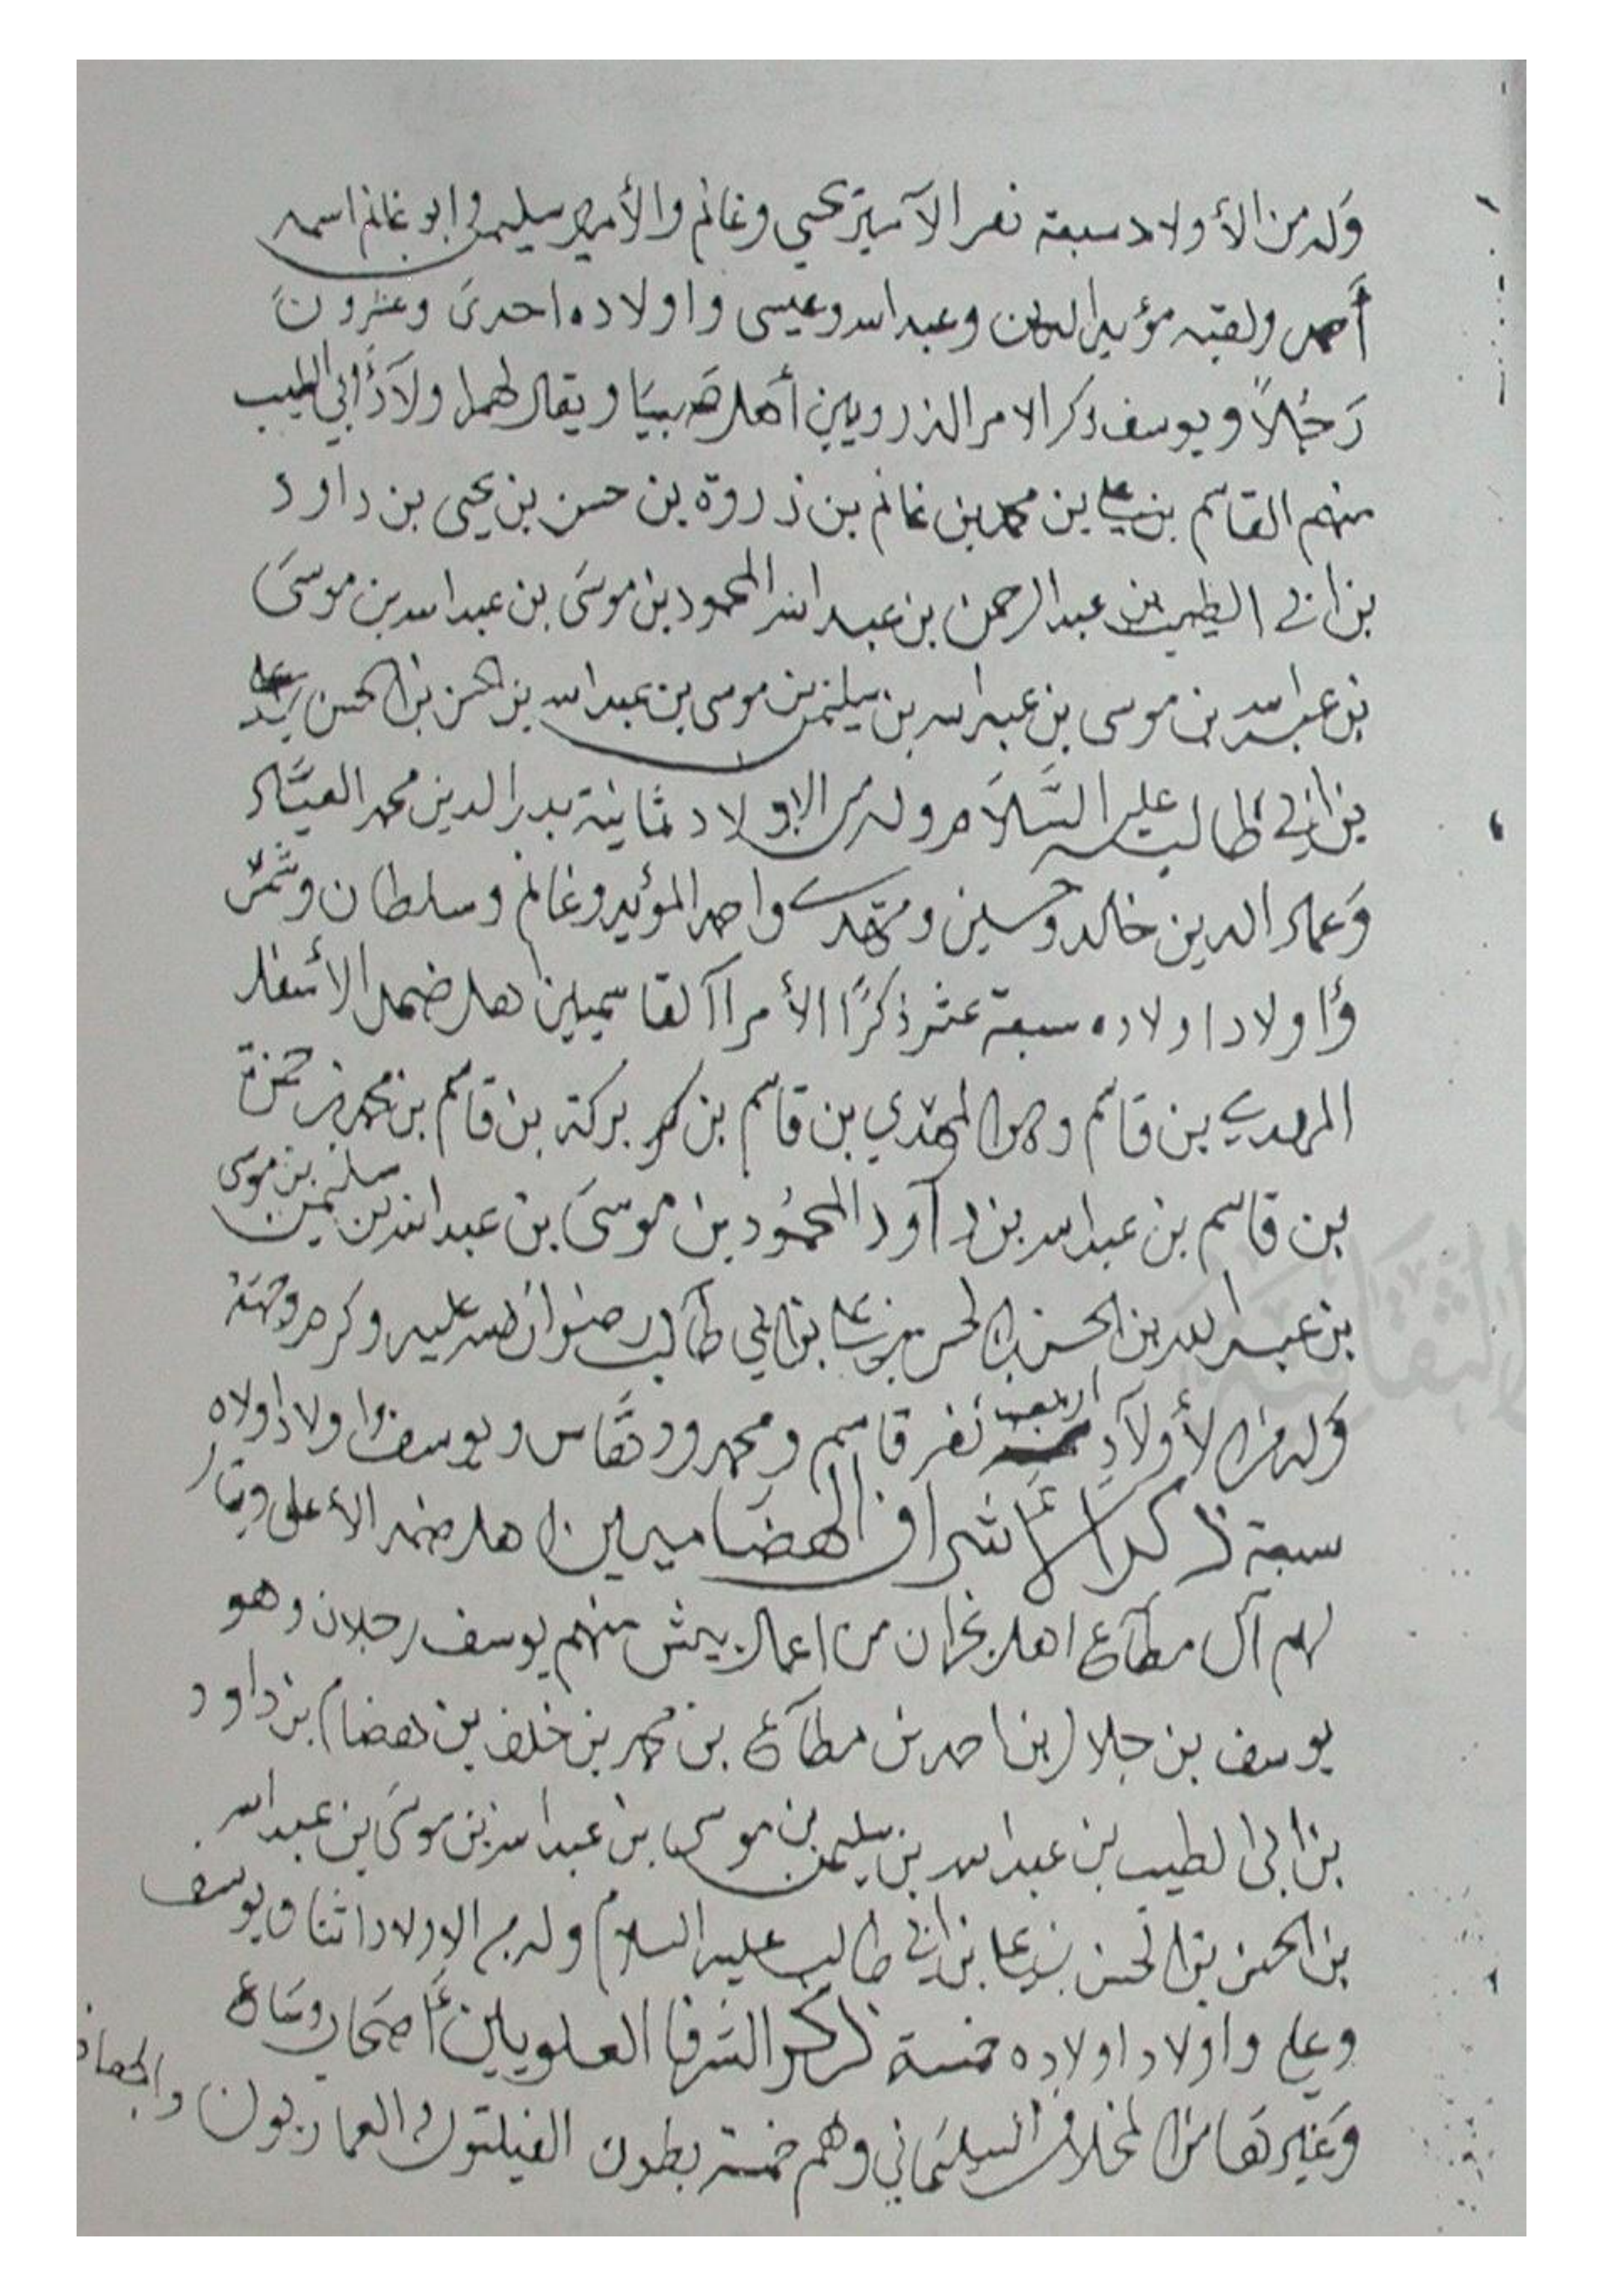 وَله من الأولاد سبعة نفر الآمير يحيى وغانم والأمير سليمن وابو غانم اسمه
أحمد ولقبه مؤيد الدين وعبد الله وعيسى واولاده احدى وعشرون
رَجُلاً ويوسف ذكر الامرا الذرويين أهل صَبيَا ويقال لهم اولادُ أبي الطيب
منهم القاسم بن علي بن محمد بن غانم بن ذروة بن حسن بن يحيى بن داود
بن ابي الطيب بن عبد الرحمن بن عبد الله المحمود بن موسَى بن عبد الله بن موسَى
بن عبد الله بن موسى بن عبد الله بن سليمن بن موسى بن عبد الله بن الحسن بن الحسن بن علي
بن ابي طالب عليه السَّلاَم وله من الاولاد ثمانية بدر الدين محمد
وَعماد الدين خالد وحسين ومهدي واحمد المؤيد وغانم وسلطان
وَاولاد اولاده سبعة عشر ذكرًا الأمرا القاسميين اهل ضمد الأسفل
المهدي بن قاسم وهو المهدي بن قاسم بن بركة بن قاسم بن محمد بن حمزة
بن قاسم بن عبد الله بن داود المحمُود بن موسَى بن عبد الله بن سليمن بن موسى
بن عبد الله بن الحسن بن الحسن بن علي بن ابي طالب رضوان الله عليه وكرم وجهه
وَله من الأولاَد اربعة نفر قاسم ومحمد ودهَّاس ويوسف واولاد اولاده
سبعة ذكر الأشراف الهضَاميين اهل ضمد الأعلى ويقال
لهم آل مطاع اهل نجران من اعمال بيش منهم يوسف رجلان وهو
يوسف بن جلا (بن احمد بن مطاع بن محمد بن خلف بن هضام) بن داود
بن ابى الطيب بن عبد الله بن سليمن بن موسى بن عبد الله بن موسى بن عبد الله
بن الحسن بن الحسن بن علي بن ابي طالب عليه السلام وله من الاولاد اثنان يوسف
وعلي واولاد اولاده خمسة ذكر الشرفا العلويين أصحَاب وسَاع
وَغيرهَا من المخلاف السليمَاني وهم خمسة بطون العماريون